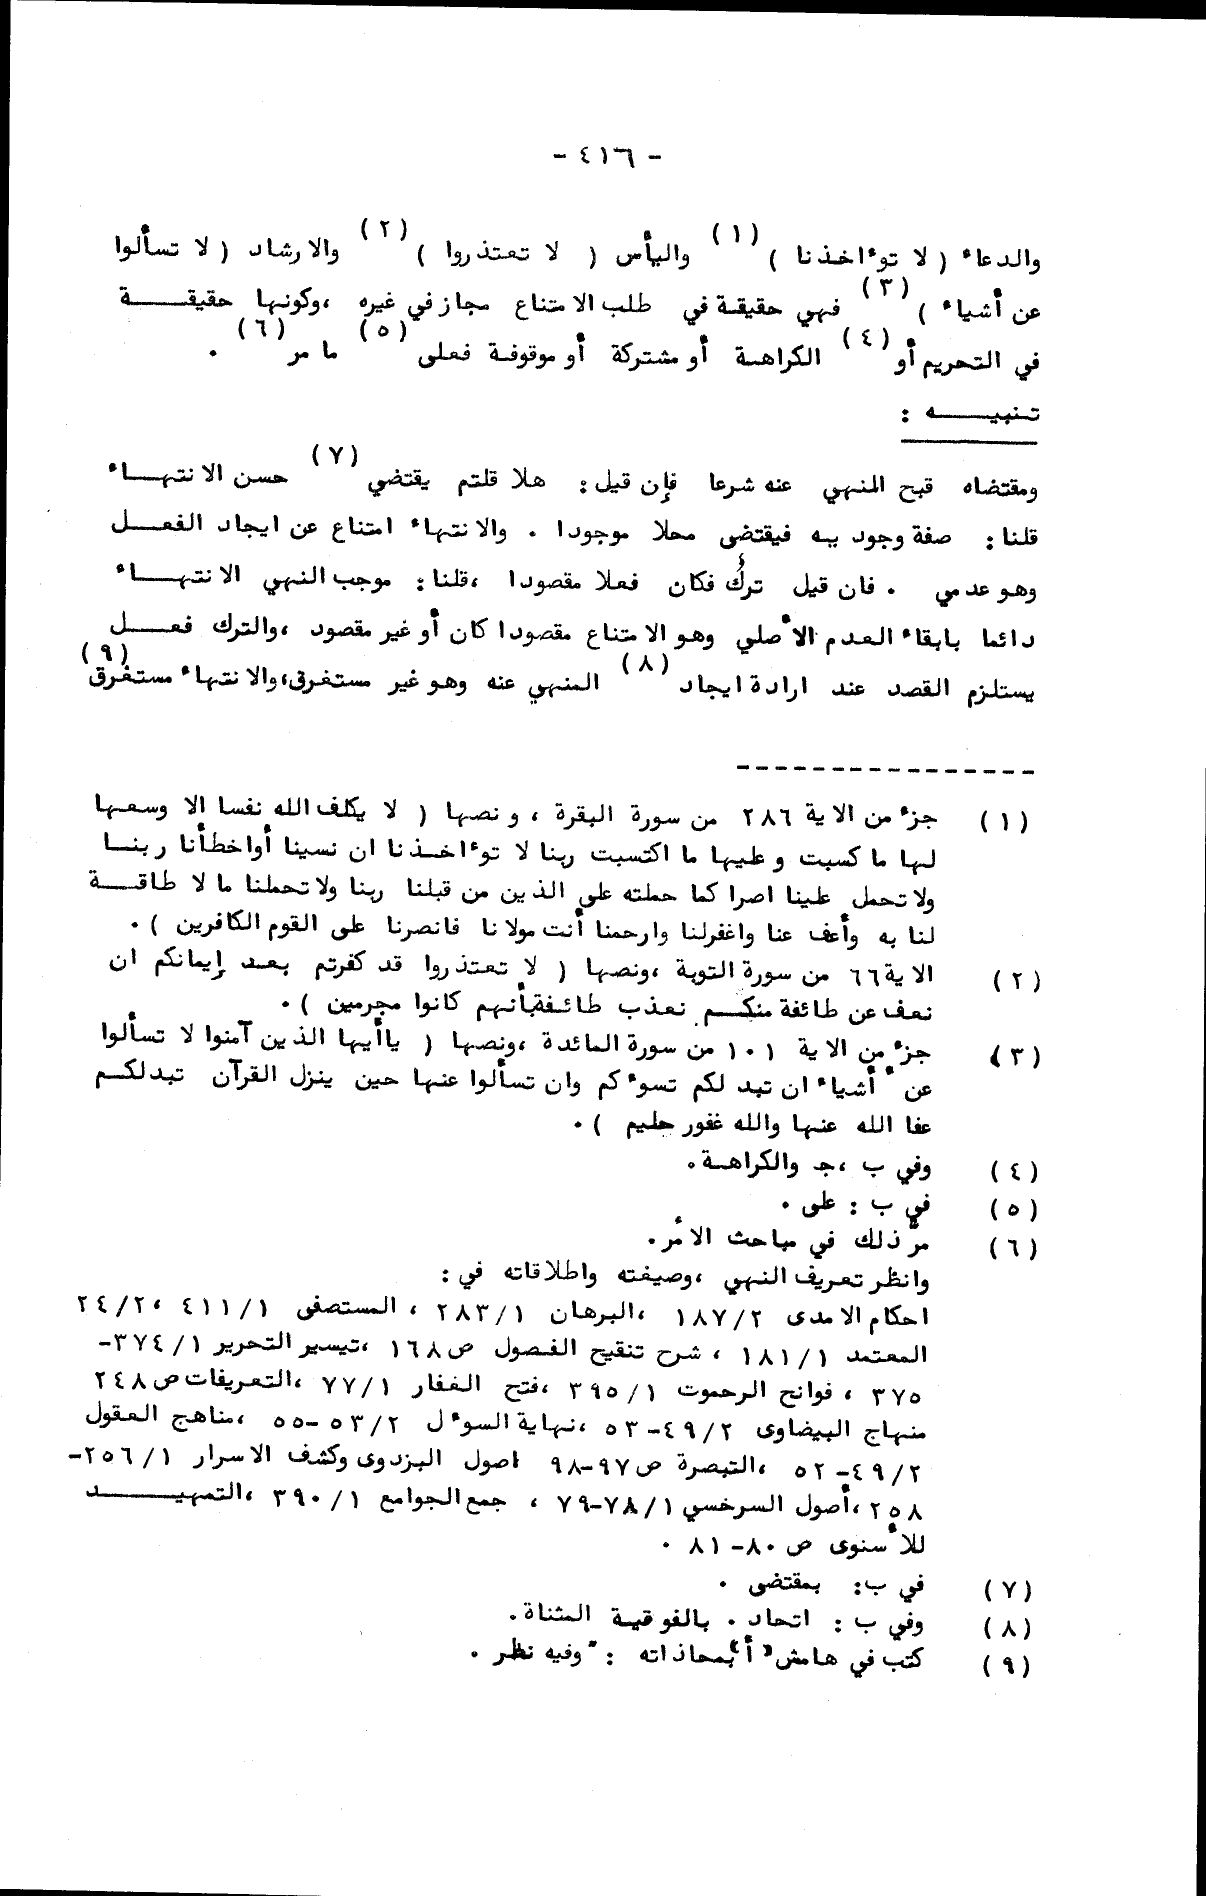 - ٤١٦ -
والدعاء ( لا تؤاخذنا ) (١) واليأس ( لا تعتذروا ) (٢) والارشاد ( لا تسألوا
عن أشياء ) (٣) فهي حقيقة في طلب الامتناع مجاز في غيره ،وكونها حقيقة
في التحريم أو (٤) الكراهة أو مشتركة أو موقوفة فعلى (٥) ما مر (٦) .
تنبيه :
ومقتضاه قبح المنهي عنه شرعا فإن قيل : هلا قلتم يقتضي (٧) حسن الانتهاء
قلنا : صفة وجودية فيقتضى محلا موجودا . والانتهاء امتناع عن ايجاد الفعل
وهو عدمي . فان قيل تركٌ فكان فعلا مقصودا ،قلنا : موجب النهي الانتهاء
دائما بابقاء العدم الأصلي وهو الامتناع مقصودا كان أو غير مقصود ،والترك فعل
يستلزم القصد عند ارادة ايجاد (٨) المنهي عنه وهو غير مستغرق،والانتهاء مستغرق (٩)
----------------
(١) جزء من الاية ٢٨٦ من سورة البقرة ، ونصها ( لا يكلف الله نفسا الا وسعها
لها ما كسبت وعليها ما اكتسبت ربنا لا تؤاخذنا ان نسينا أواخطأنا ربنا
ولا تحمل علينا اصرا كما حملته على الذين من قبلنا ربنا ولا تحملنا ما لا طاقة
لنا به وأعف عنا واغفرلنا وارحمنا أنت مولانا فانصرنا على القوم الكافرين ) .
(٢) الاية ٦٦ من سورة التوبة ،ونصها ( لا تعتذروا قد كفرتم بعد إيمانكم ان
نعف عن طائفة منكم نعذب طائفة بأنهم كانوا مجرمين ) .
(٣) جزء من الاية ١٠١ من سورة المائدة ،ونصها ( ياأيها الذين آمنوا لا تسألوا
عن أشياء ان تبد لكم تسؤكم وان تسألوا عنها حين ينزل القرآن تبدلكم
عفا الله عنها والله غفور حليم ) .
(٤) وفي ب ،جـ والكراهة .
(٥) في ب : على .
(٦) مرّ ذلك في مباحث الأمر .
وانظر تعريف النهي ،وصيغته واطلاقاته في :
احكام الامدى ١٨٧/٢ ،البرهان ٢٨٣/١ ، المستصفى ٤١١/١ ،٢٤/٢
المعتمد ١٨١/١ ، شرح تنقيح الفصول ص١٦٨ ،تيسير التحرير ٣٧٤/١-
٣٧٥ ، فواتح الرحموت ٣٩٥/١ ،فتح الغفار ٧٧/١ ،التعريفات ص٢٤٨
منهاج البيضاوى ٤٩/٢-٥٣ ،نهاية السؤل ٥٣/٢-٥٥ ،مناهج العقول
٤٩/٢-٥٢ ،التبصرة ص٩٧-٩٨ اصول البزدوى وكشف الاسرار ٢٥٦/١-
٢٥٨ ،أصول السرخسي ٧٨/١-٧٩ ، جمع الجوامع ٣٩٠/١ ،التمهيد
للأسنوى ص ٨٠-٨١ .
(٧) في ب : بمقتضى .
(٨) وفي ب : اتحاد . بالفوقية المثناة .
(٩) كتب في هامش "أ" بمحاذاته : "وفيه نظر .